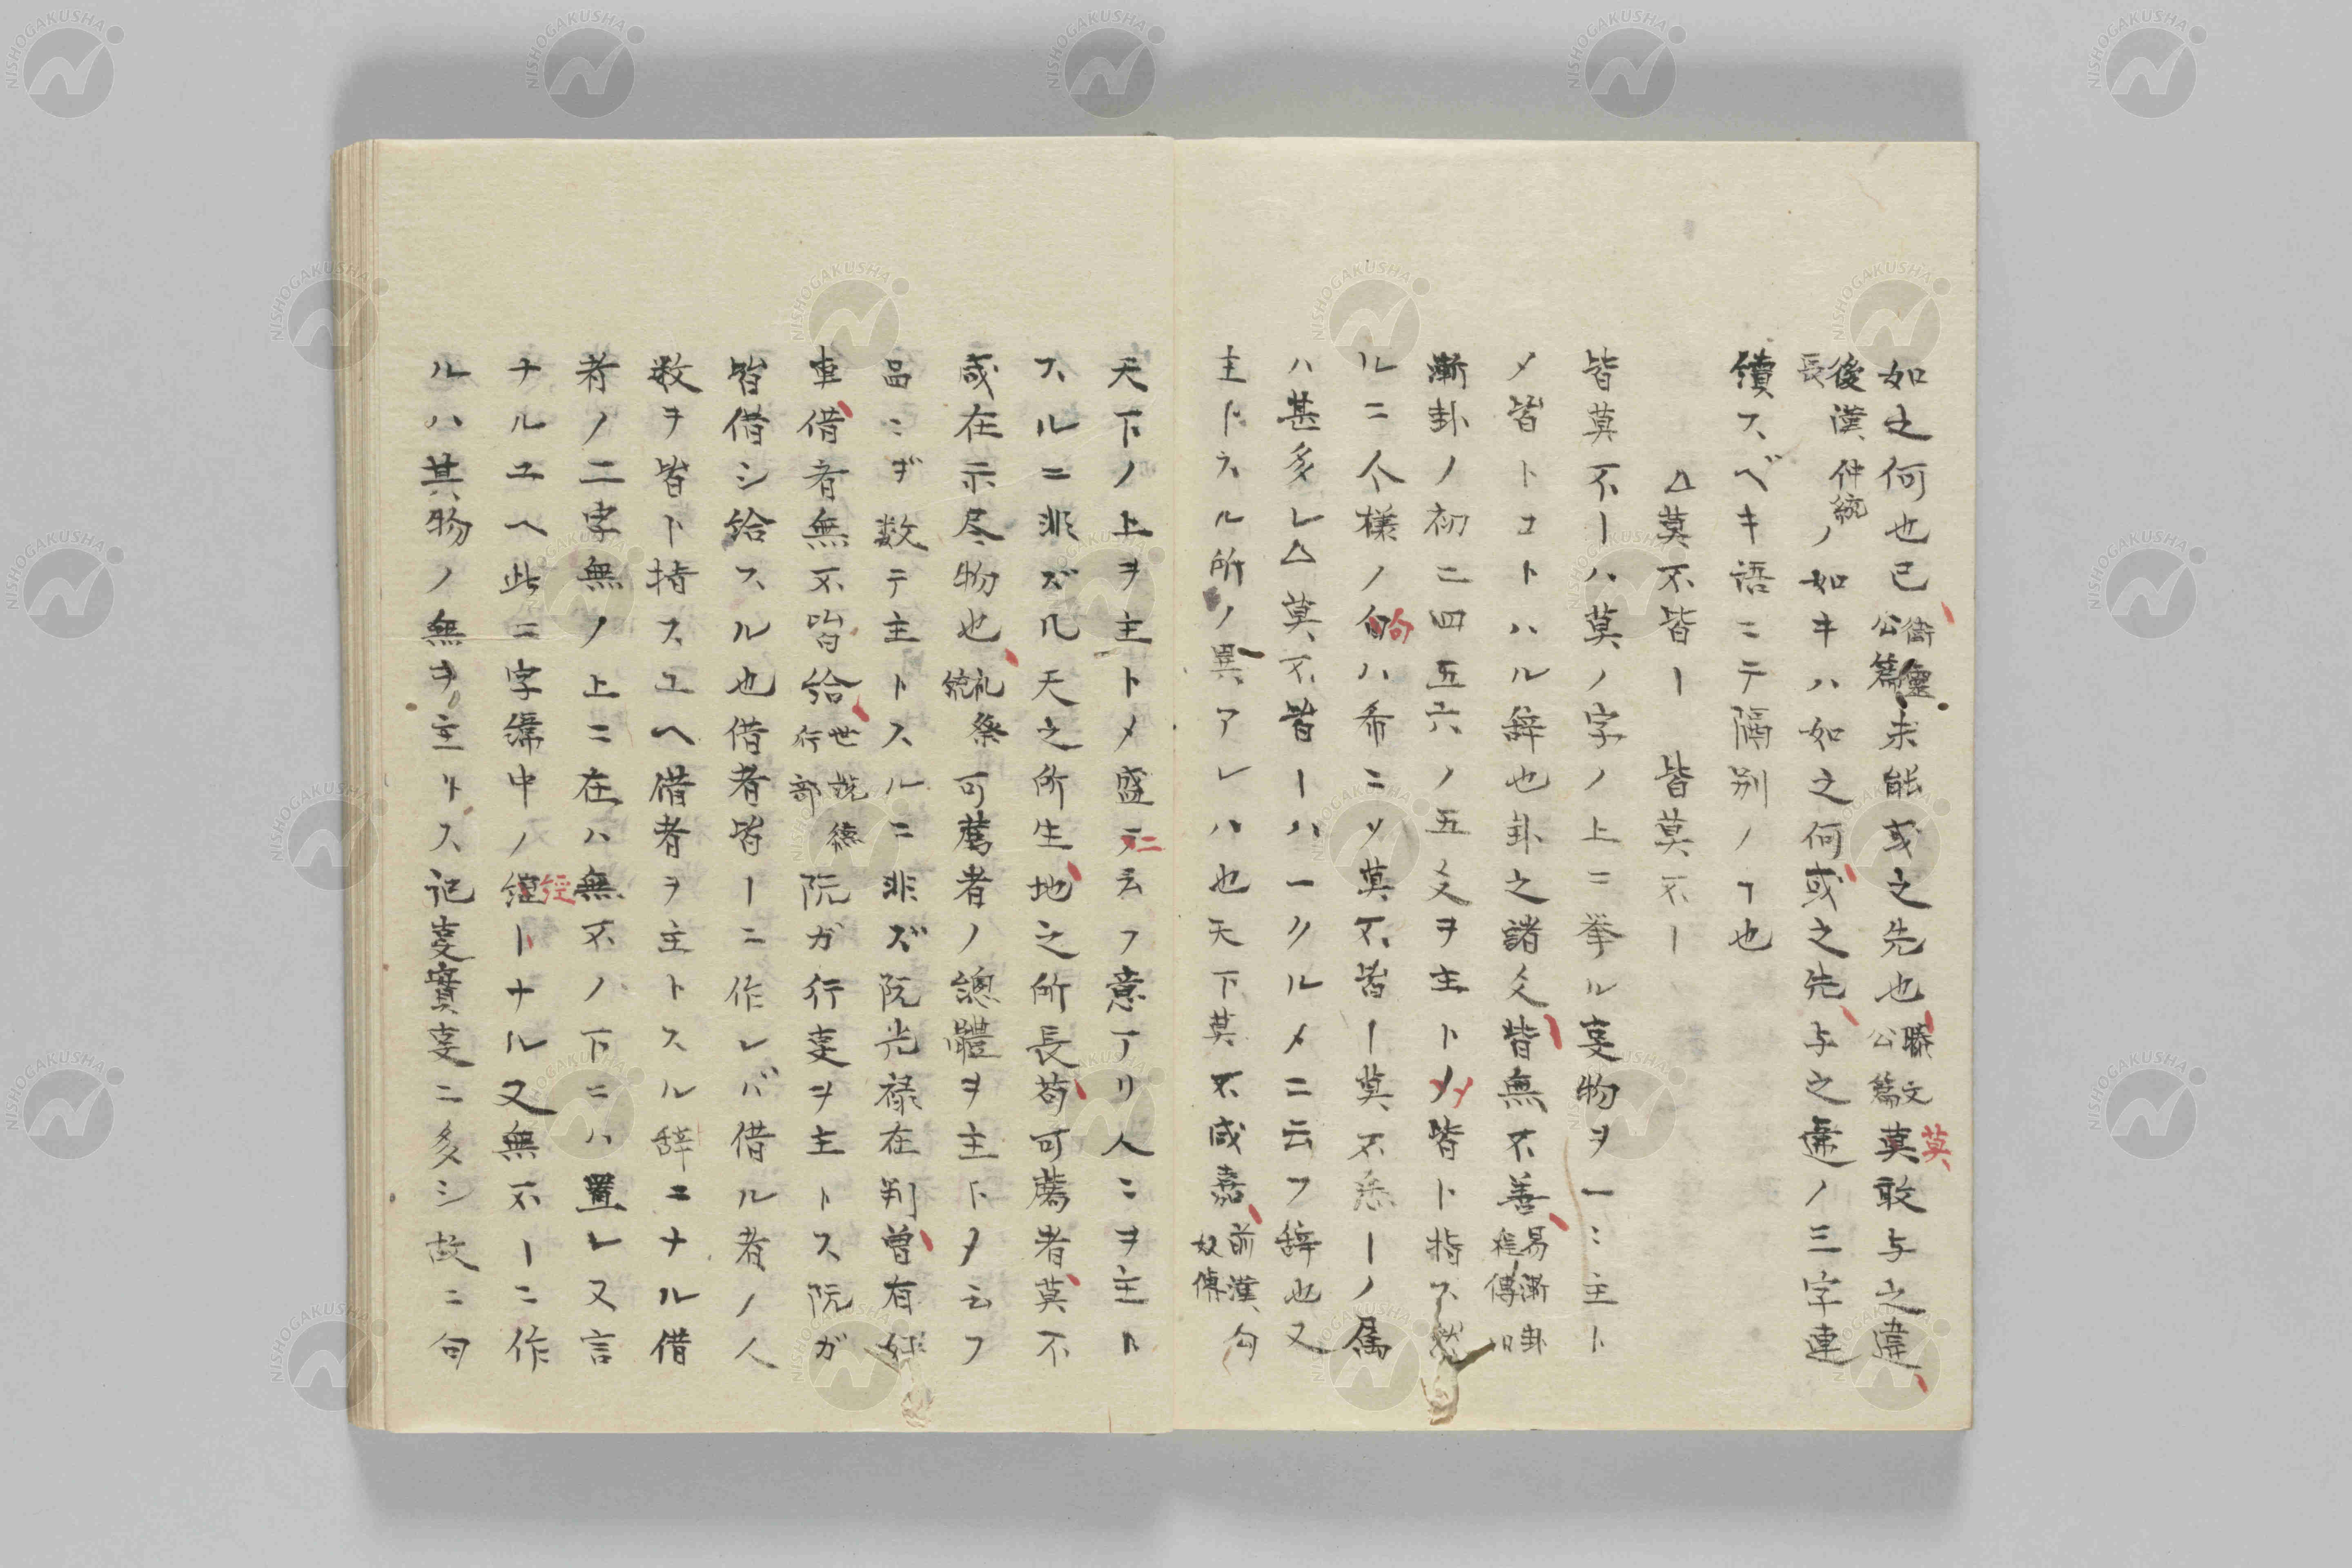 如之何也已衛靈公篇未能或之先也滕文公篇莫敢与之違
後漢仲長統ノ如キハ如之何或之先与之違ノ三字連
續スベキ語ニテ隔別ノヿ也
△莫不皆ー 皆莫不ー
皆莫不ーハ莫ノ字ノ上ニ挙ル叓物ヲ一ミ主ト
メ皆トコトハル辞也卦之諸爻皆無不善易漸卦程傳
漸卦ノ初二四五六ノ五爻ヲ主トメ皆ト指ス
ルニ今樣ノ句ハ希ニソ莫不皆ー莫不悉ーノ属
ハ甚多レ△莫不皆ーハ一クルメニ云フ辞也又
主トスル所ノ異アレハ也天下莫不咸嘉前漢匈奴傳
天下ノ上ヲ主トメ盛ニ云フ意アリ人ニヲ主ト
スルニ非ズ凡天之所生地之所長苟可薦者莫不
咸在示尽物也礼祭統可薦者ノ總體ヲ主トメ云フ
品ニヲ数テ主トスルニ非ズ阮光禄在剡曽有好
車借者無不皆給世説德行部阮ガ行叓ヲ主トス阮ガ
皆借シ給スル也借者皆ーニ作レバ借ル者ノ人
数ヲ皆ト指スユヘ借者ヲ主トスル辞ニナル借
者ノ二字無ノ上ニ在ハ無不ノ下ニハ置レ又言
ナルユヘ此ニ字備中ノ經トナル又無不ーニ作
ルハ其物ノ無ヲ主リトス記叓實叓ニ多シ故ニ句